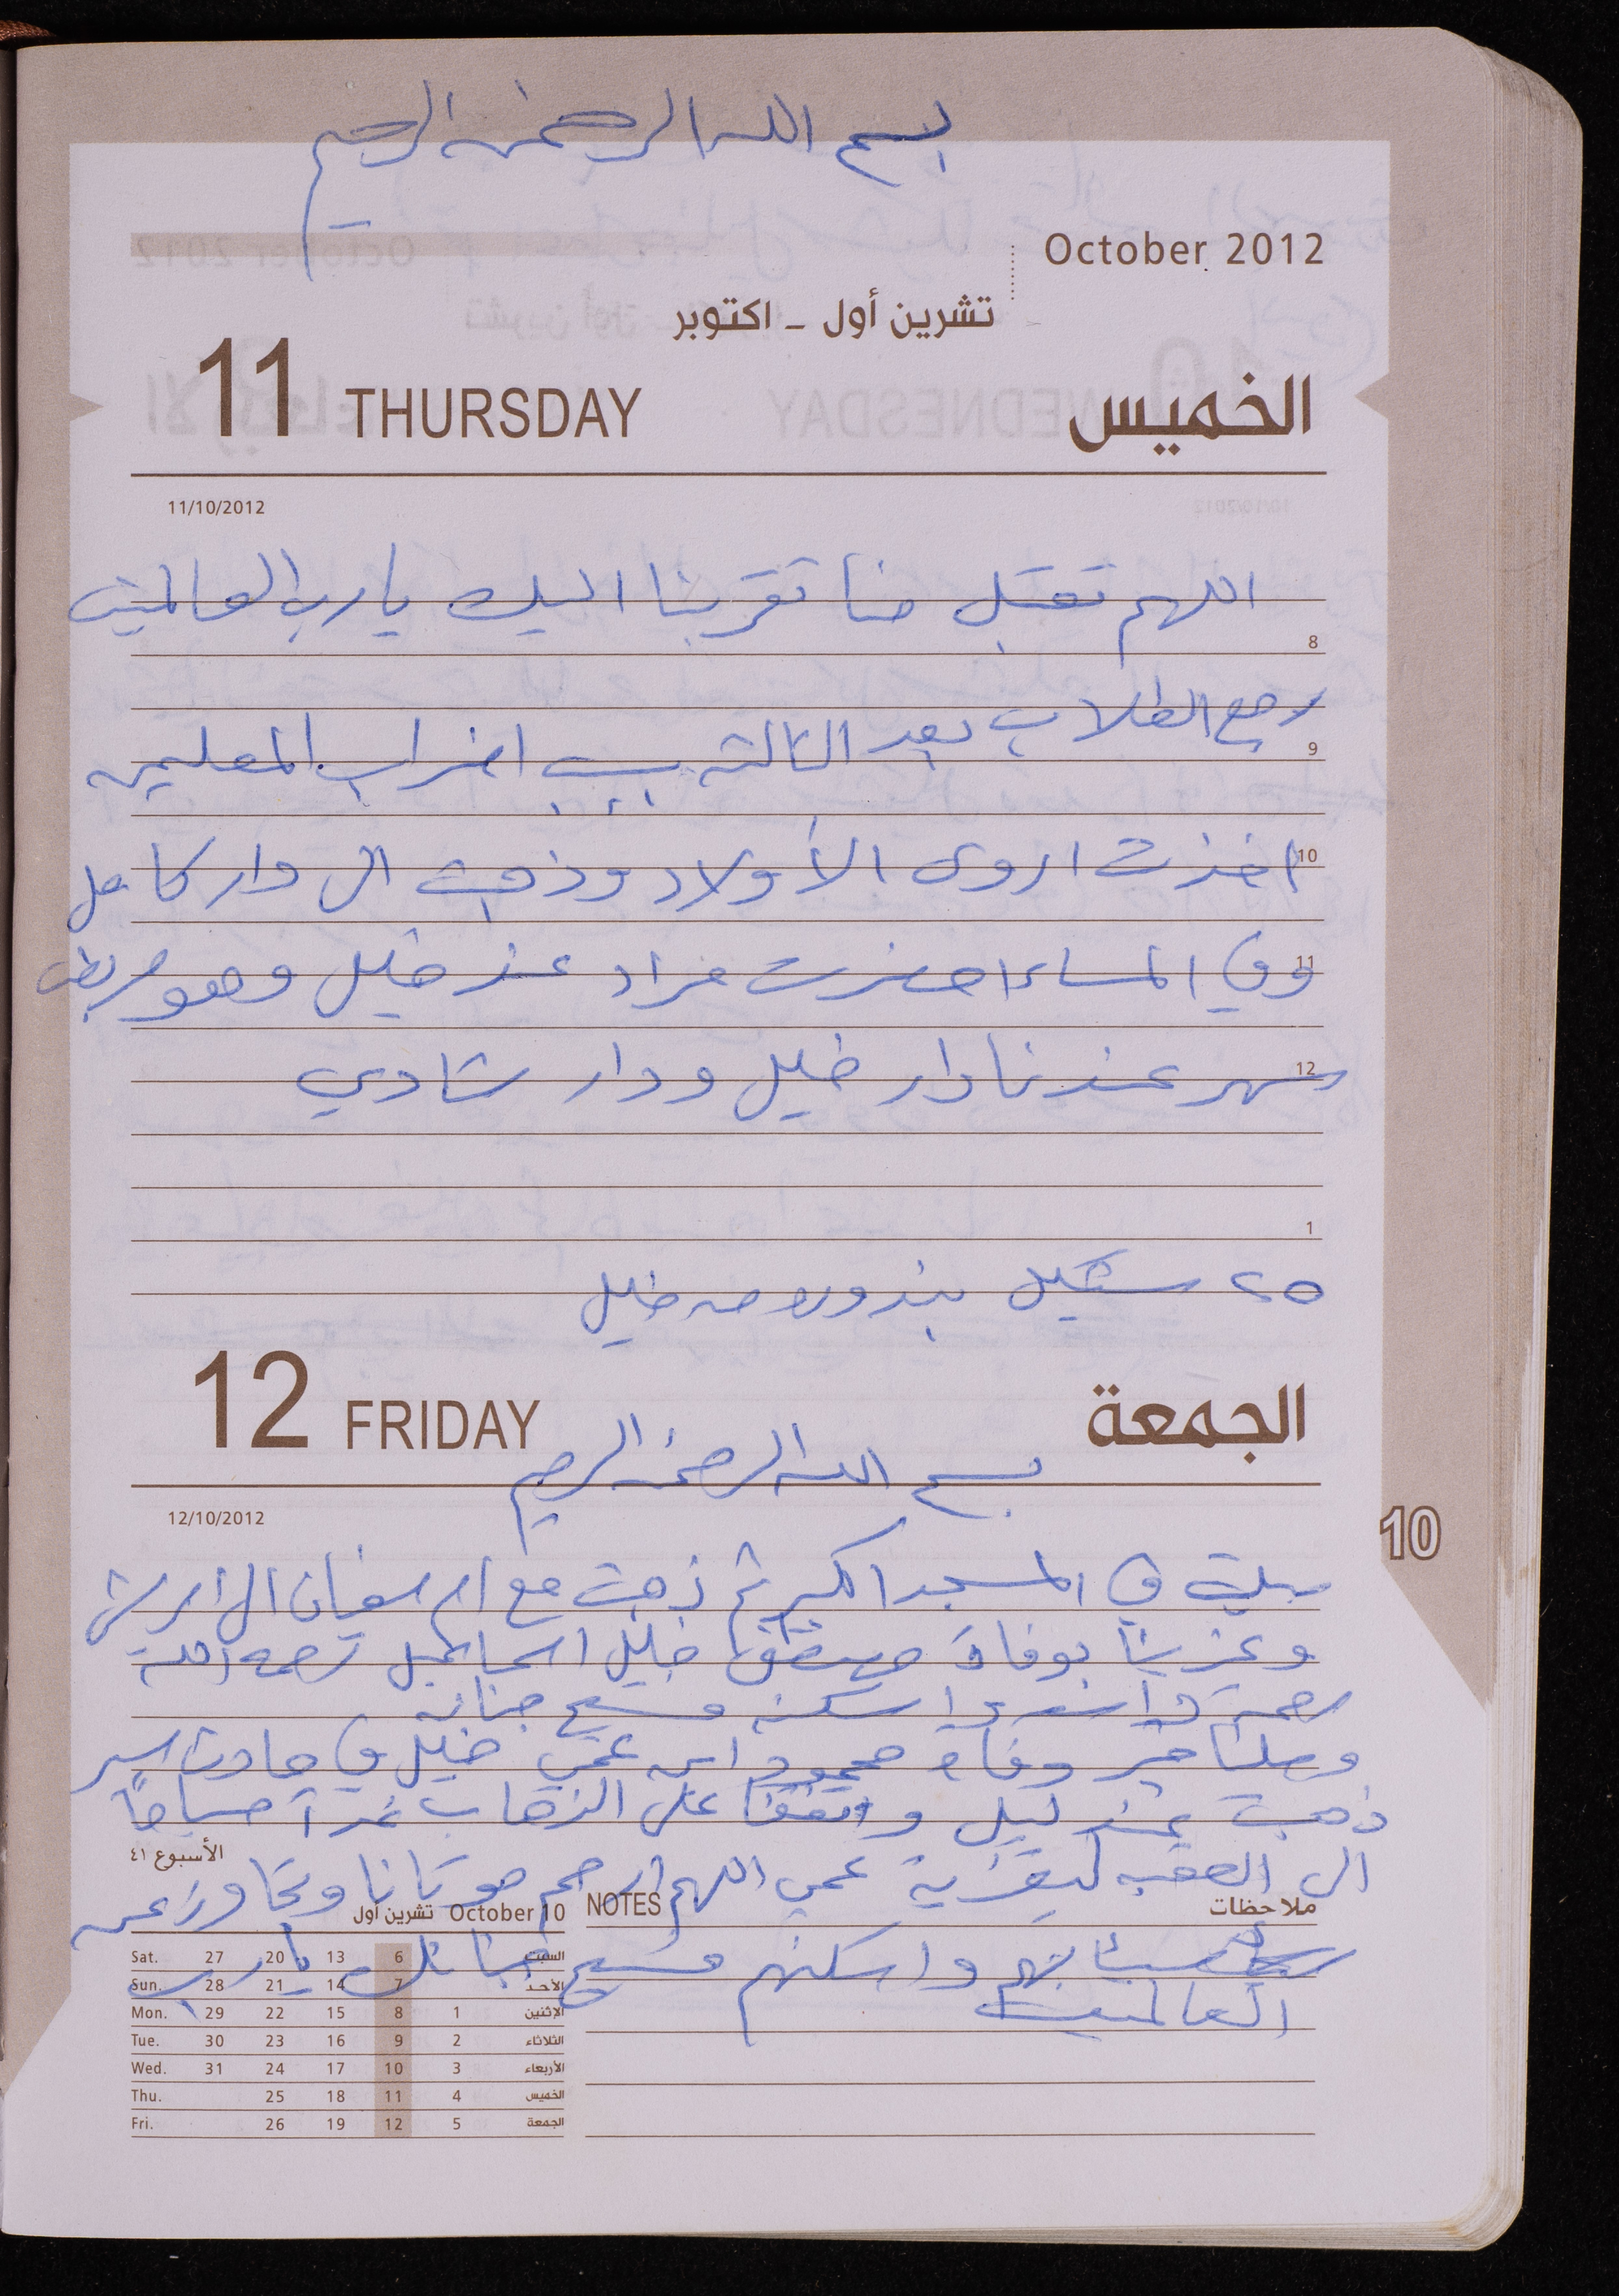 بسم الله الرحمن الرحيم
October 2012
تشرين أول - اكتوبر
11 THURSDAY الخميس
11/10/2012
اللهم تقبل منا تقربنا اليك يا رب العالمين
8
رجع الطلاب بعد الثالثة بسبب اضراب المعلمين
9
اخذت اروى الأولاد وذهبت الى دار كامل
10
وفي المساء احضرت مراد عند خليل وهو مريض
11
سهر عندنا دار خليل ودار شادي
12
1
٢٥ شيكل بندوره من خليل
12 FRIDAY الجمعة
بسم الله الرحمن الرحيم
12/10/2012
صليت في المسجد الكبير ثم ذهبت مع ام سفيان الى
وعزينا بوفاة خليل رحمه الله
رحمة واسعه واسكنه فسيح جنانه
وصلنا خبر وفاة محمود ابن عمي خليل في حادث سير
ذهبت عند واتفقنا على الذهاب غداً صباحاً
الى العقبه عمي اللهم ارحم موتانا وتجاوز عن
سيئاتهم واسكنهم فسيح جنانك يا رب
العالمين
10
الأسبوع ٤١
October 10 تشرين أول
Sat. 27 20 13 6 السبت
Sun. 28 21 14 7 الأحد
Mon. 29 22 15 8 1 الإثنين
Tue. 30 23 16 9 2 الثلاثاء
Wed. 31 24 17 10 3 الأربعاء
Thu. 25 18 11 4 الخميس
Fri. 26 19 12 5 الجمعة
NOTES ملاحظات